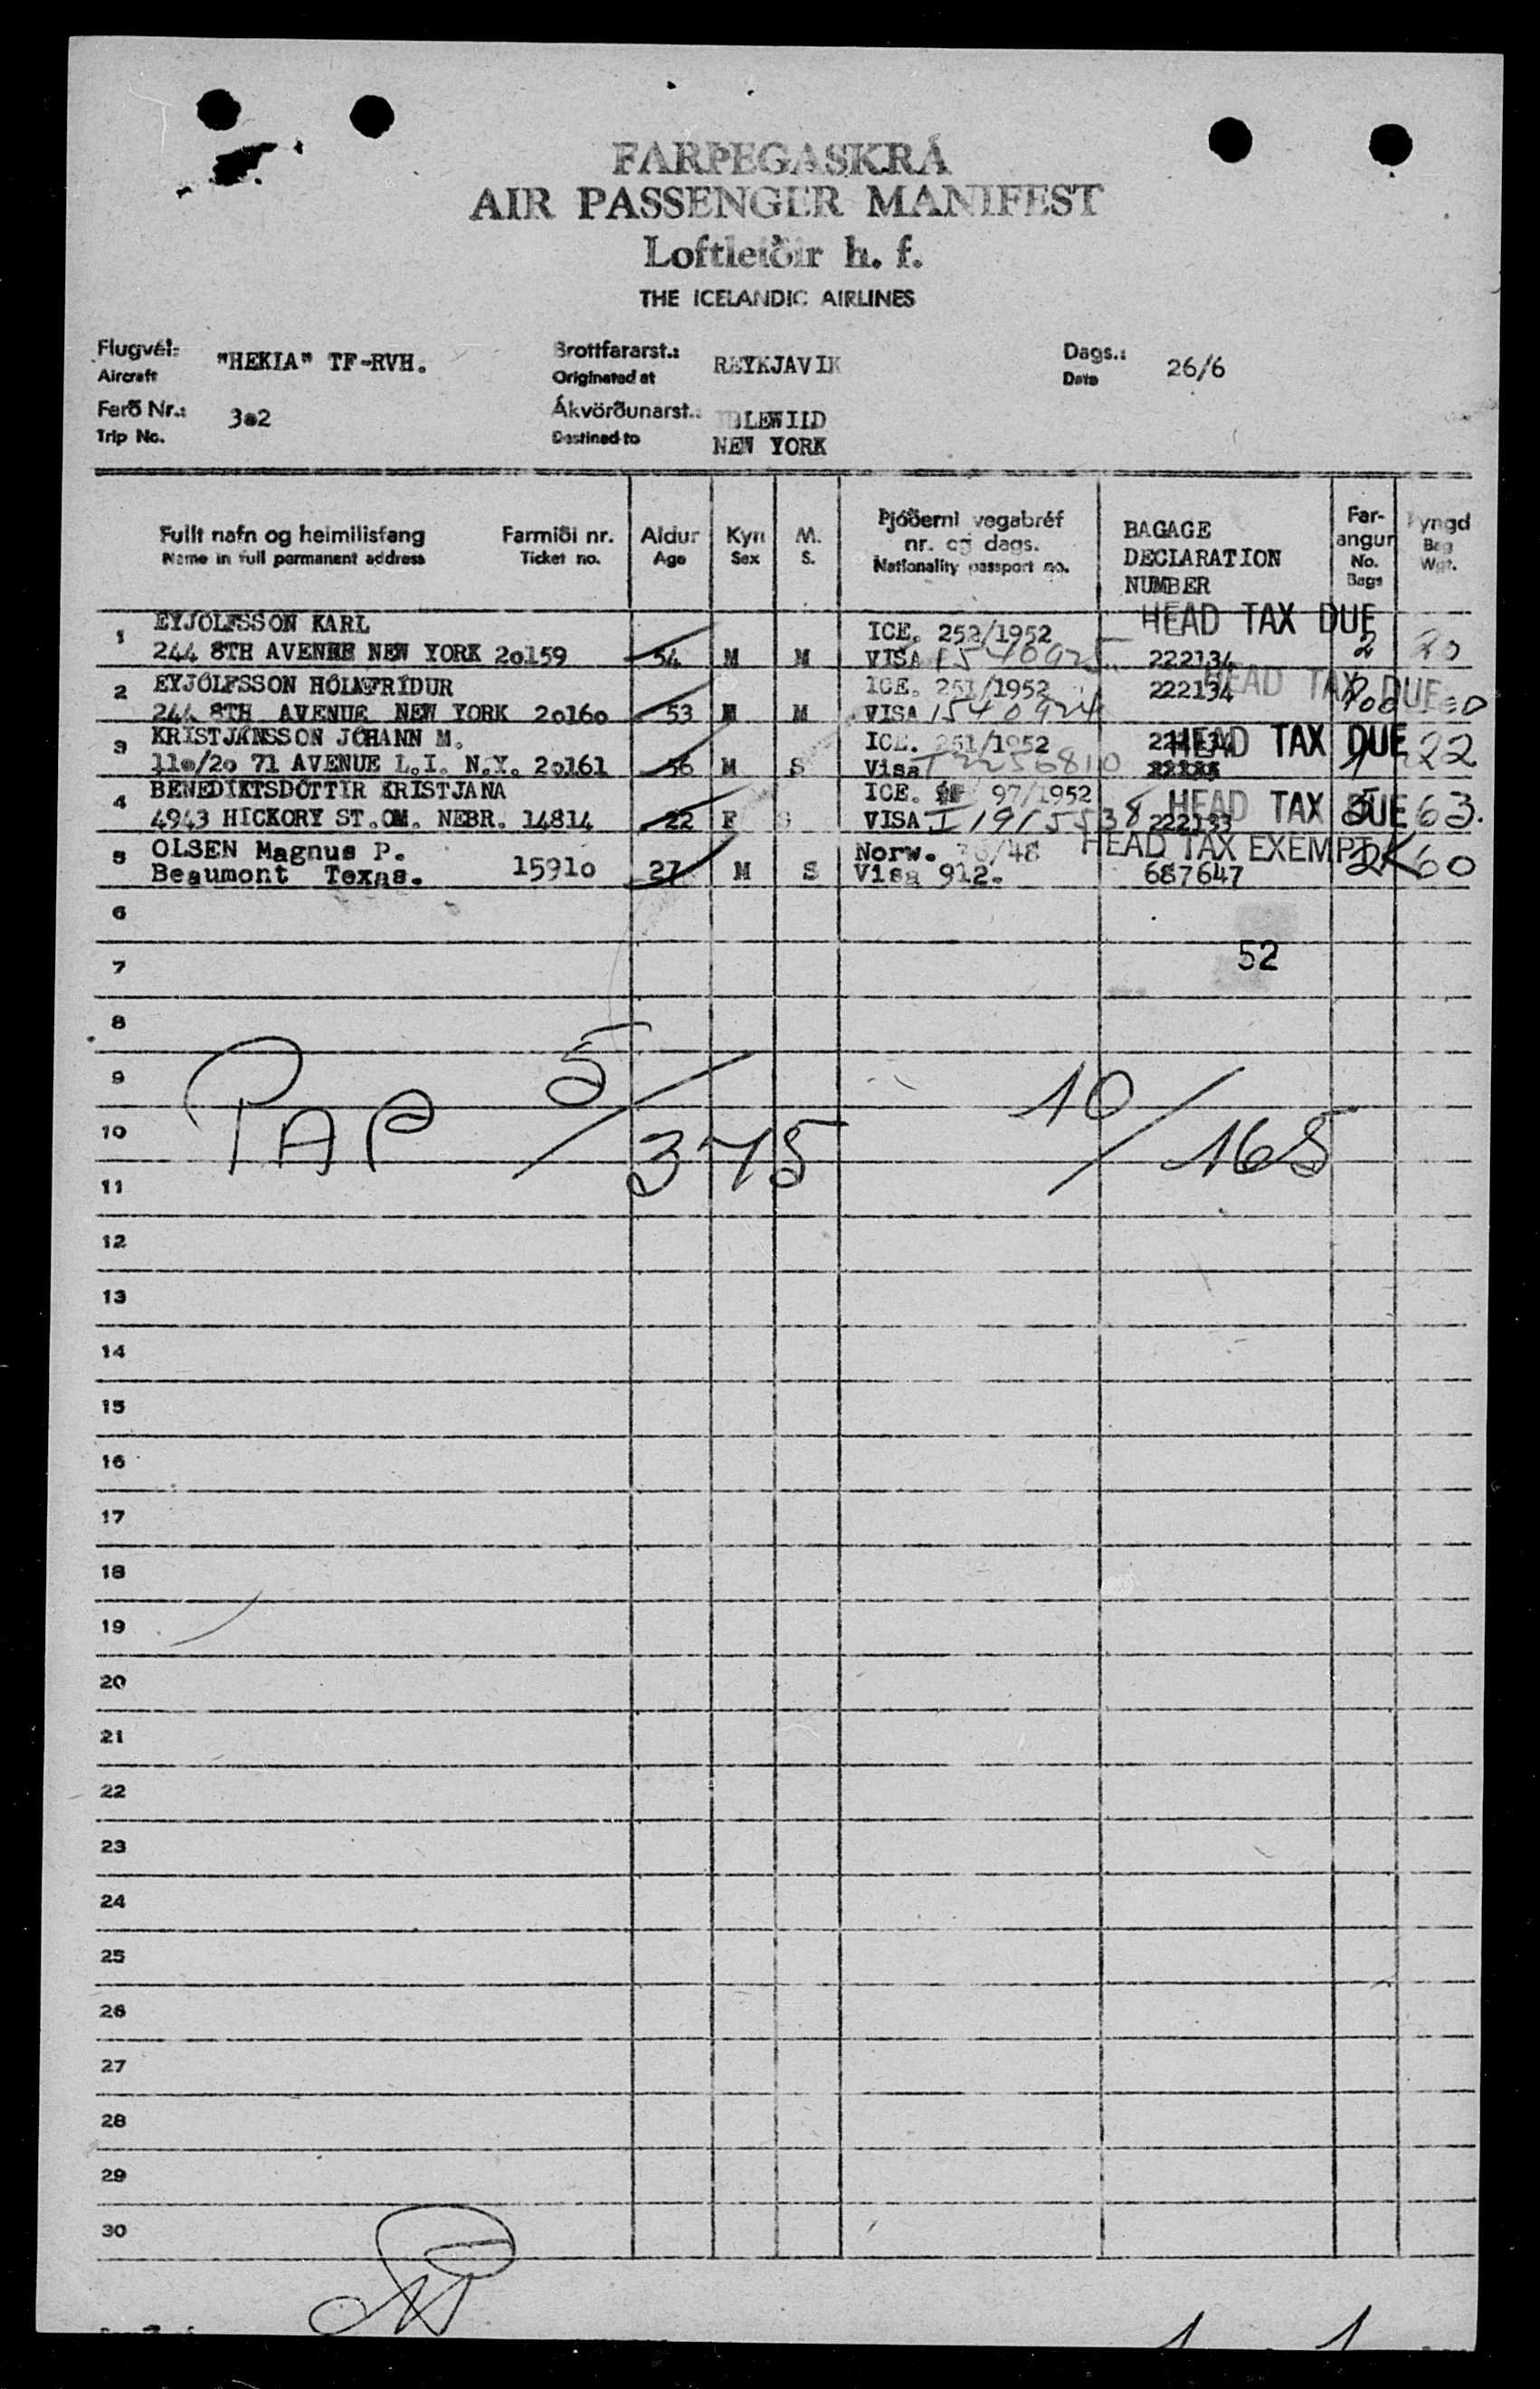 FARÞEGASKRÁ
AIR PASSENGER MANIFEST
Loftleiðir h. f.
THE ICELANDIC AIRLINES
Flugvél: "HEKLA" TF-RVH. Brottfararst.: REYKJAVIK Dags.: 26/6
Aircraft Originated at Date
Ferð Nr.: 3o2 Ákvörðunarst.: IDLEWILD
Trip No. Destined to NEW YORK
Fullt nafn og heimilisfang Farmiði nr. Aldur Kyn M. Þjóðerni vegabréf nr. og dags. BAGAGE DECLARATION NUMBER Far-angur Þyngd
Name in full permanent address Ticket no. Age Sex S. Nationality passport no. No. Bags Bag Wgt.
HEAD TAX DUE
1 EYJOLFSSON KARL ICE. 252/1952 2 20
244 8TH AVENUE NEW YORK 2o159 54 M M VISA 1540925 222134
2 EYJÓLFSSON HÓLMFRÍDUR ICE. 251/1952 222134 HEAD TAX DUE
244 8TH AVENUE NEW YORK 2o16o 53 M VISA 1540924
3 KRISTJÁNSSON JÓHANN M. ICE. 251/1952 HEAD TAX DUE 22
11o/2o 71 AVENUE L.I. N.Y. 2o161 56 M S Visa I 2256810 1
4 BENEDIKTSDÓTTIR KRISTJANA ICE. 97/1952 HEAD TAX DUE 63.
4943 HICKORY ST.OM. NEBR. 14814 22 F S VISA I 1915538 222133
5 OLSEN Magnus P. Norw. /48 HEAD TAX EXEMPT 60
Beaumont Texas. 1591o 27 M S Visa 912. 687647
6
52
7
8
9
PAP 5/375 10/165
10
11
12
13
14
15
16
17
18
19
20
21
22
23
24
25
26
27
28
29
30